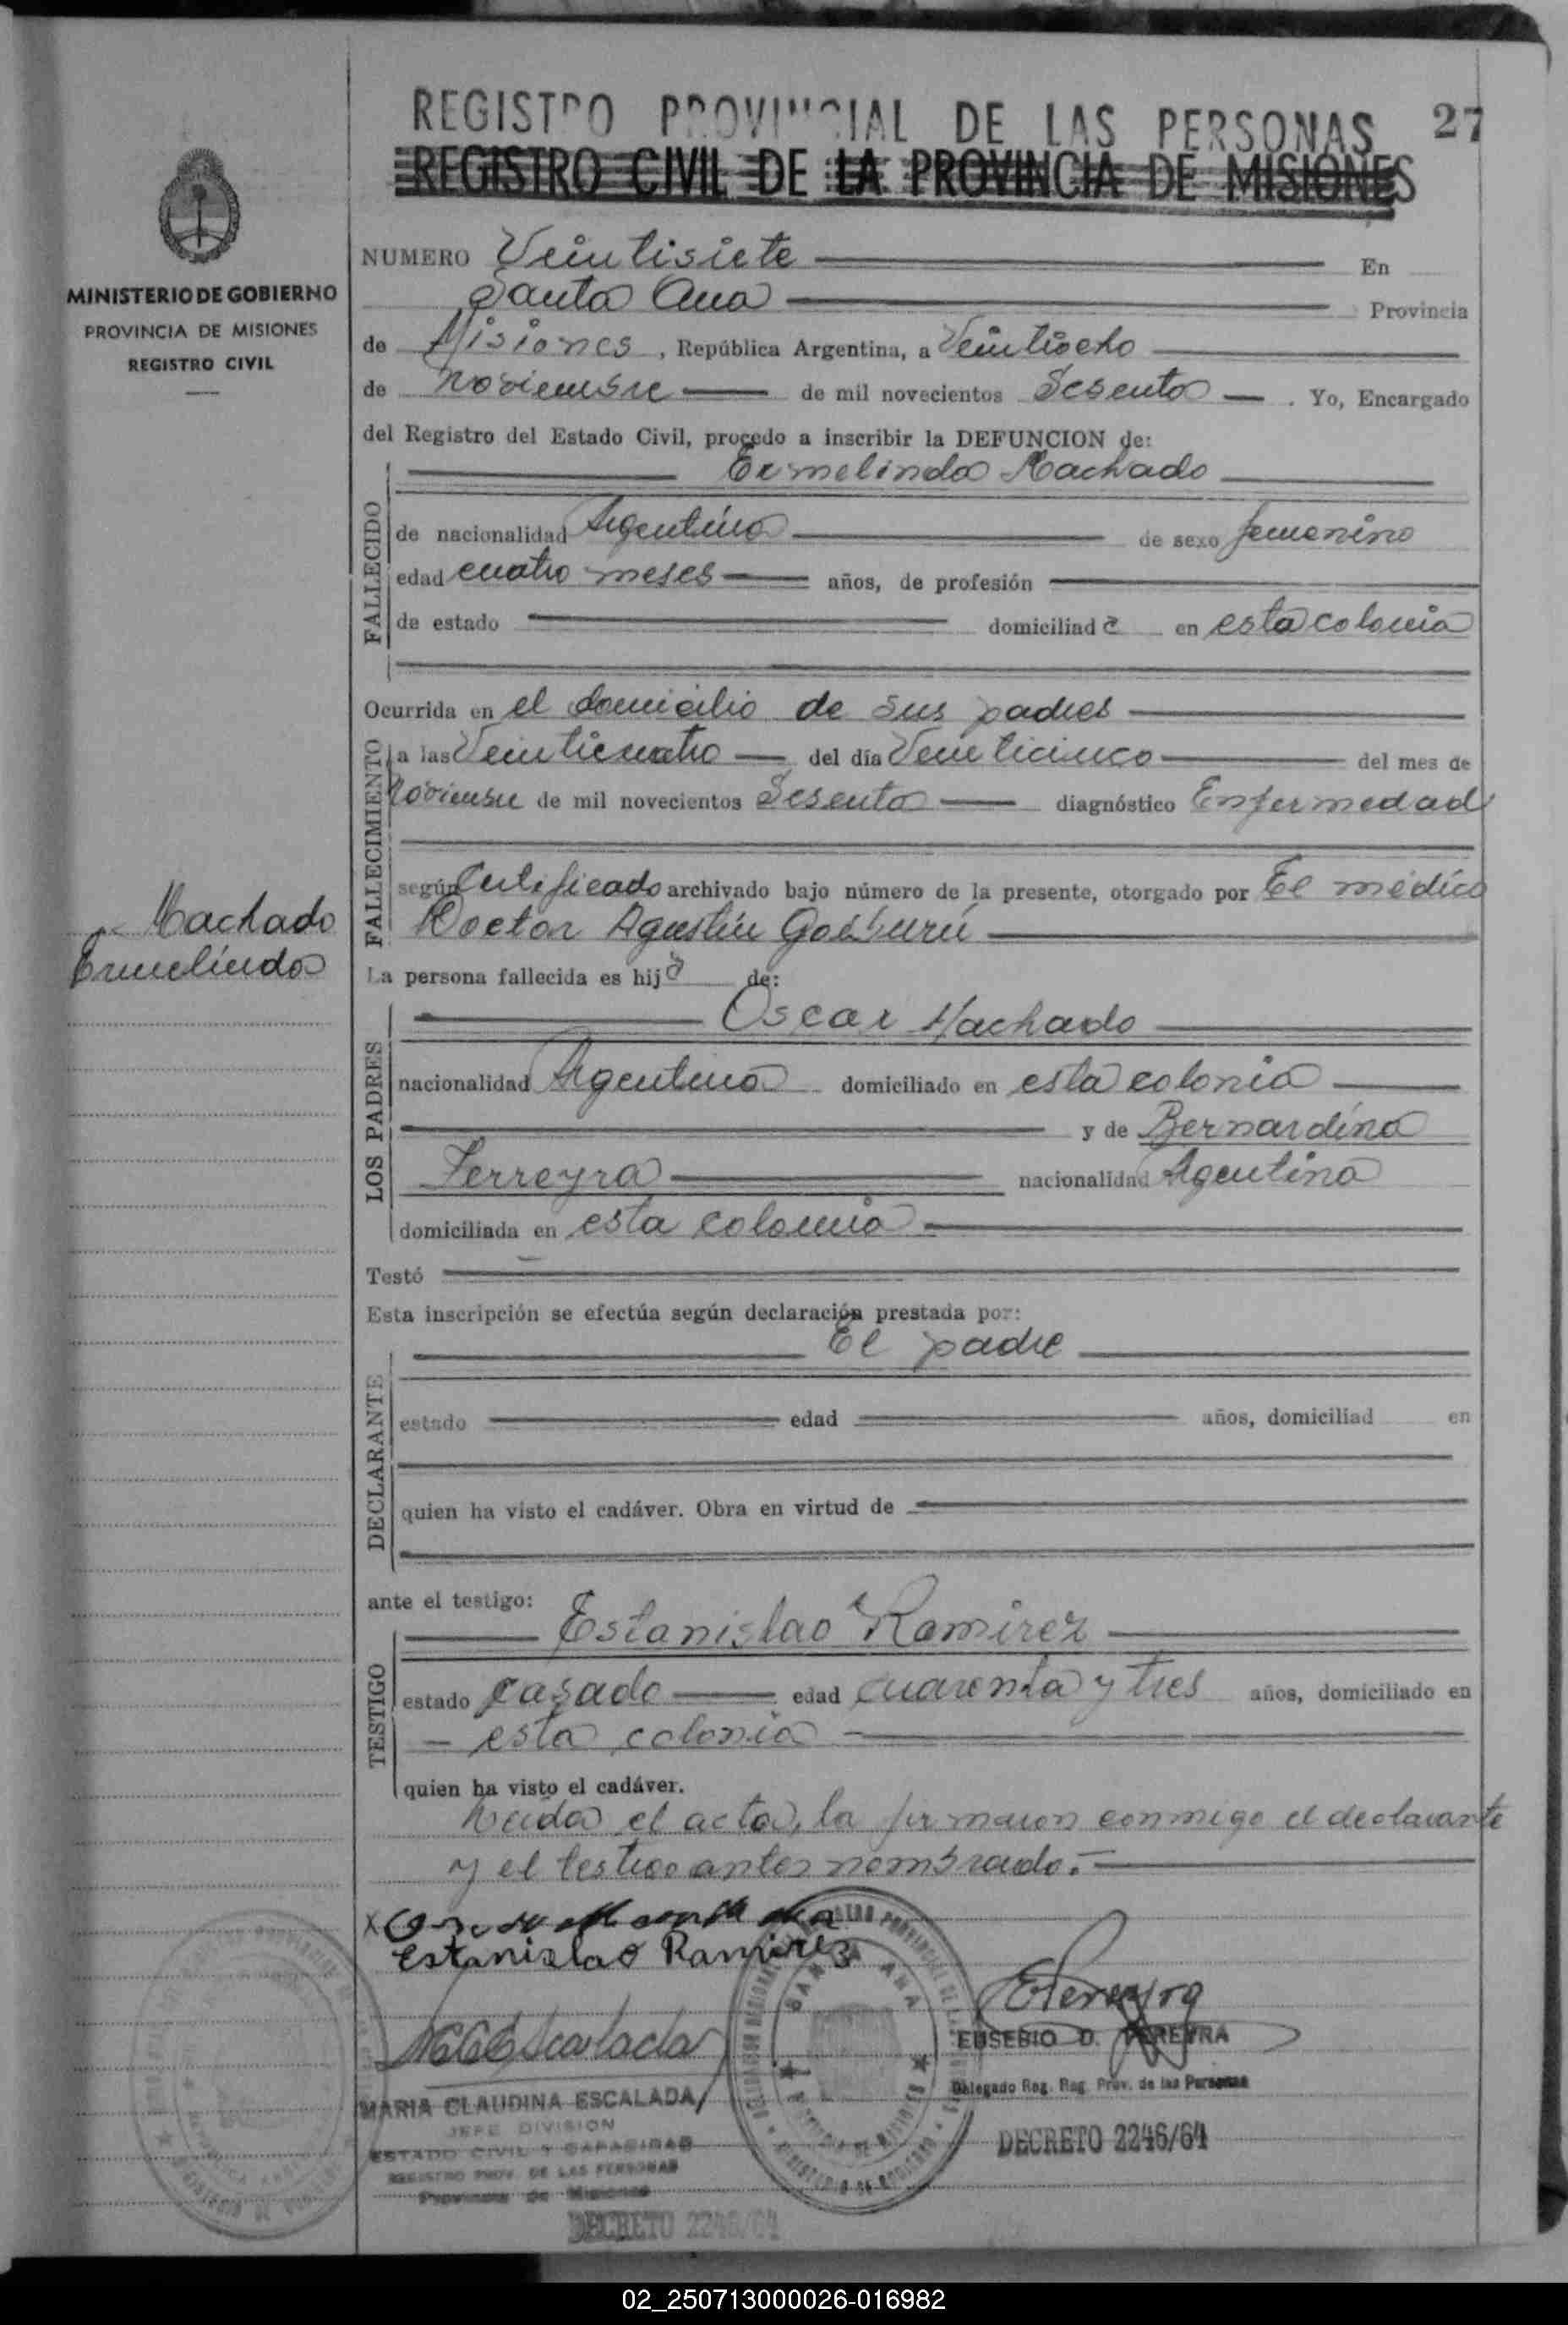 REGISTRO PROVINCIAL DE LAS PERSONAS 27
REGISTRO CIVIL DE LA PROVINCIA DE MISIONES
MINISTERIO DE GOBIERNO
PROVINCIA DE MISIONES
REGISTRO CIVIL
NUMERO Veintisiete En
Santa Ana Provincia
de Misiones, República Argentina, a Veintiocho
de noviembre de mil novecientos Sesenta. Yo, Encargado
del Registro del Estado Civil, procedo a inscribir la DEFUNCION de:
Ermelinda Machado
FALLECIDO
de nacionalidad Argentina de sexo femenino
edad cuatro meses años, de profesión
de estado domiciliada en esta colonia
Ocurrida en el domicilio de sus padres
FALLECIMIENTO
a las Veinticuatro del día Veinticinco del mes de
Noviembre de mil novecientos Sesenta diagnóstico Enfermedad
según Certificado archivado bajo número de la presente, otorgado por El médico
Doctor Agustín Goiburú
Machado
Ermelinda
La persona fallecida es hija de:
LOS PADRES
Oscar Machado
nacionalidad Argentina domiciliado en esta colonia
y de Bernardina
Ferreyra nacionalidad Argentina
domiciliada en esta colonia
Testó
Esta inscripción se efectúa según declaración prestada por:
El padre
DECLARANTE
estado edad años, domiciliad en
quien ha visto el cadáver. Obra en virtud de
ante el testigo:
TESTIGO
Estanislao Ramirez
estado casado edad cuarenta y tres años, domiciliado en
esta colonia
quien ha visto el cadáver.
Leida el acta, la firmaron conmigo el declarante
y el testigo antes nombrado.-
Estanislao Ramirez
SANTA ANA
EPereyra
EUSEBIO D. PEREYRA
Delegado Reg. Reg. Prov. de las Personas
DECRETO 2246/64
MCEscalada
MARIA CLAUDINA ESCALADA
JEFE DIVISION
ESTADO CIVIL Y CAPACIDAD
REGISTRO PROV. DE LAS PERSONAS
Provincia de Misiones
DECRETO 2246/64
02_250713000026-016982